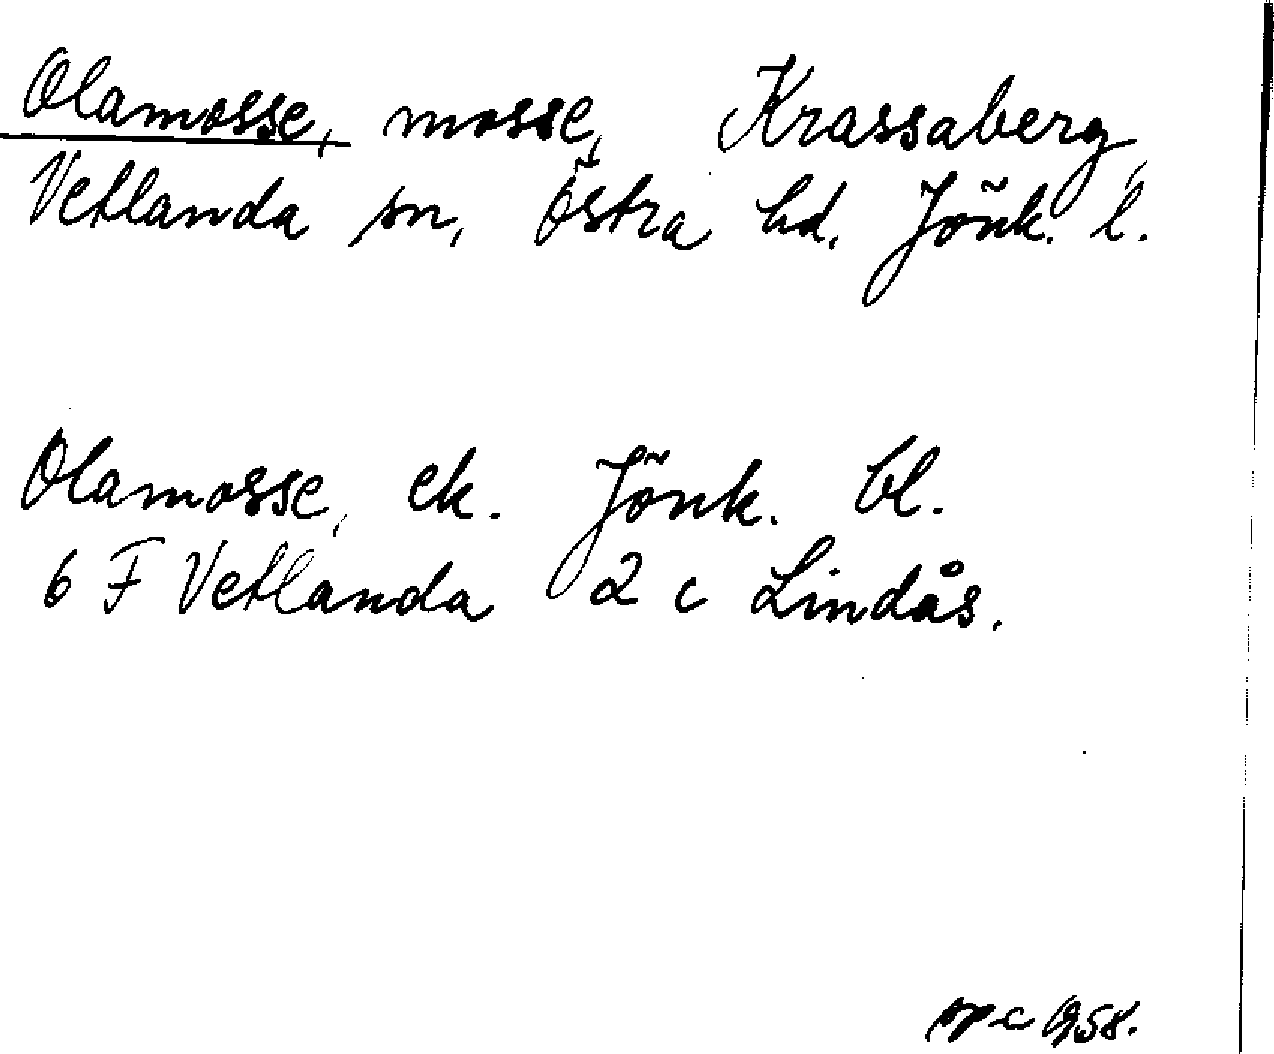 Olamosse, mosse, Krassaberg,
Vetlanda sn, Östra hd. Jönk. l.
Olamosse, ek. Jönk. bl.
6 F Vetlanda 2 c Lindås.
1958.